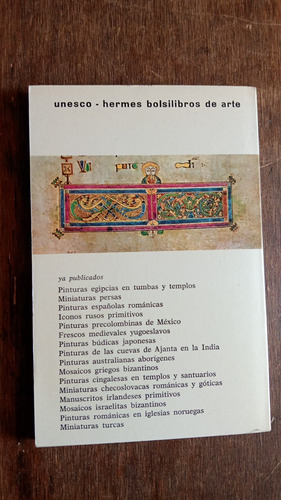 unesco - hermes bolsilibros de arte
ya publicados
Pinturas egipcias en tumbas y templos
Miniaturas persas
Pinturas españolas románicas
Iconos rusos primitivos
Pinturas precolombinas de México
Frescos medievales yugoeslavos
Pinturas búdicas japonesas
Pinturas de las cuevas de Ajanta en la India
Pinturas australianas aborígenes
Mosaicos griegos bizantinos
Pinturas cingalesas en templos y santuarios
Miniaturas checoslovacas románicas y góticas
Manuscritos irlandeses primitivos
Mosaicos israelitas bizantinos
Pinturas románicas en iglesias noruegas
Miniaturas turcas